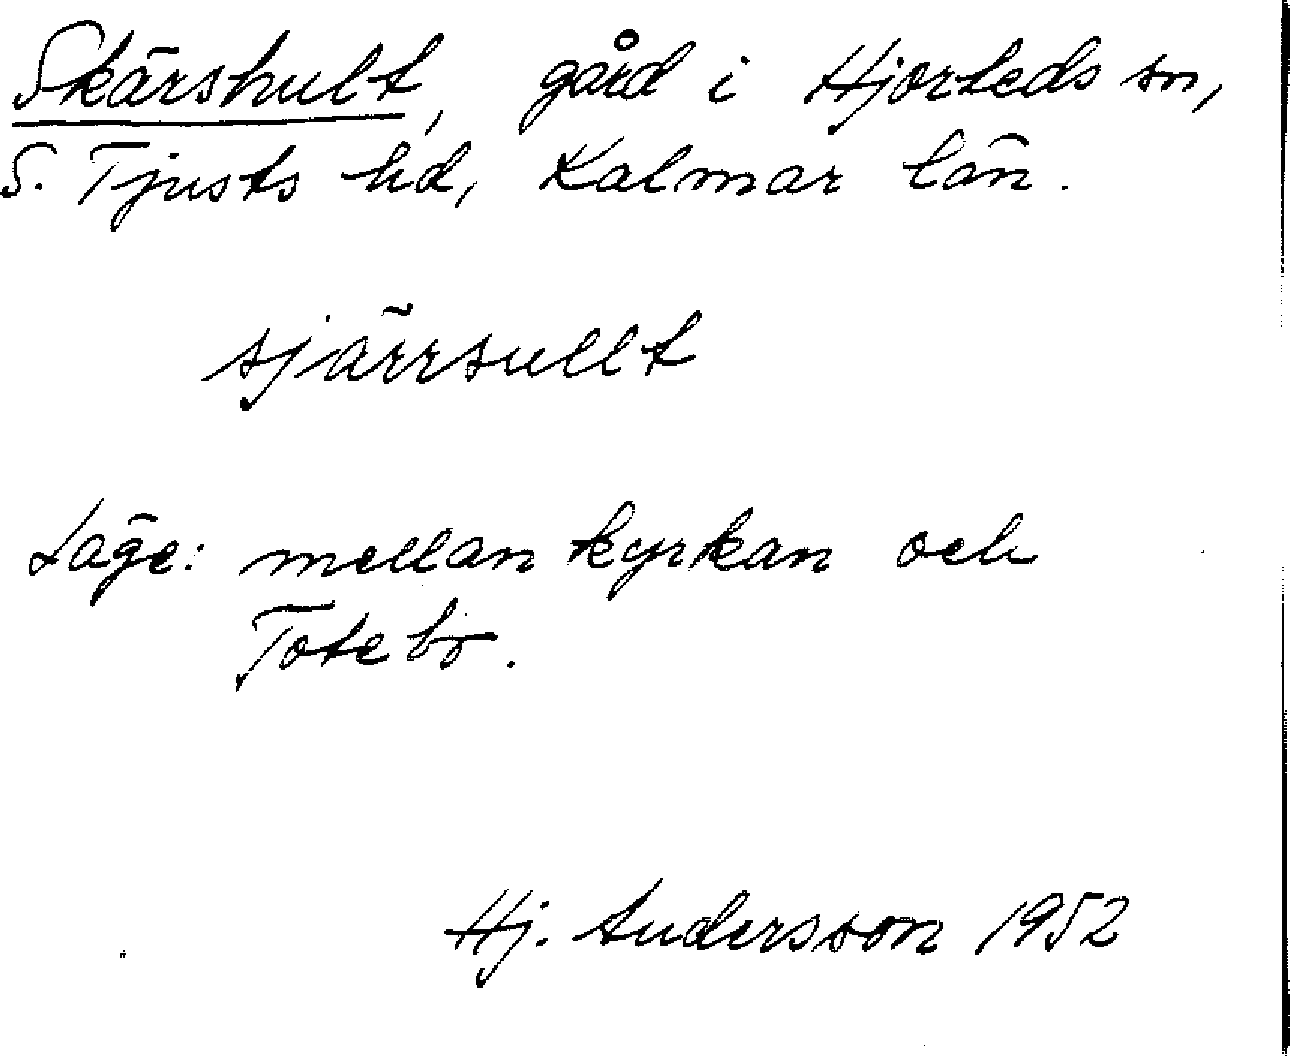 Skärshult, gård i Hjorteds sn,
S. Tjusts hd, Kalmar län.
sjärrsullt
Läge: mellan kyrkan och
Totebo.
Hj. Andersson 1952